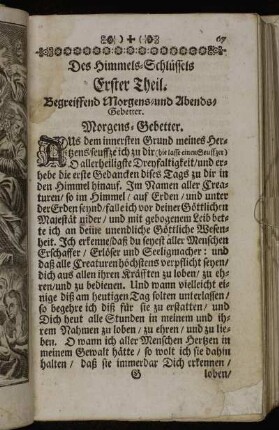 67
Des Himmels-Schlüssels
Erster Theil.
Begreiffend Morgens- und Abends-
Gebetter.
Morgens-Gebetter.
AUs dem innersten Grund meines Her-
tzens seufftze ich zu dir (hie lasse einen Seufftzer)
O allerheiligste Dreyfaltigkeit / und er-
hebe die erste Gedancken dises Tags zu dir in
den Himmel hinauf. Im Namen aller Crea-
turen / so im Himmel / auf Erden / und unter
der Erden seynd / falle ich vor deiner Göttlichen
Majestät nider / und mit gebogenem Leib bet-
te ich an deine unendliche Göttliche Wesen-
heit. Ich erkenne / daß du seyest aller Menschen
Erschaffer / Erlöser und Seeligmacher: und
daß alle Creaturen höchstens verpflicht seyen /
dich aus allen ihren Kräfften zu loben / zu eh-
ren / und zu bedienen. Und wann vielleicht ei-
nige diß am heutigen Tag solten unterlassen /
so begehre ich diß für sie zu erstatten / und
Dich heut alle Stunden in meinem und ih-
rem Nahmen zu loben / zu ehren / und zu lie-
ben. O wann ich aller Menschen Hertzen in
meinem Gewalt hätte / so wolt ich sie dahin
halten / daß sie immerdar Dich erkennen /
G loben /